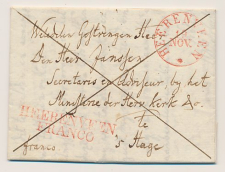 HEERENVEEN
NOV.
Den Heer Janssen
Secretaris en Adviseur, by het
Ministerie der Herv. Kerk &c.
te
HEERENVEEN
FRANCO
s Hage
franco